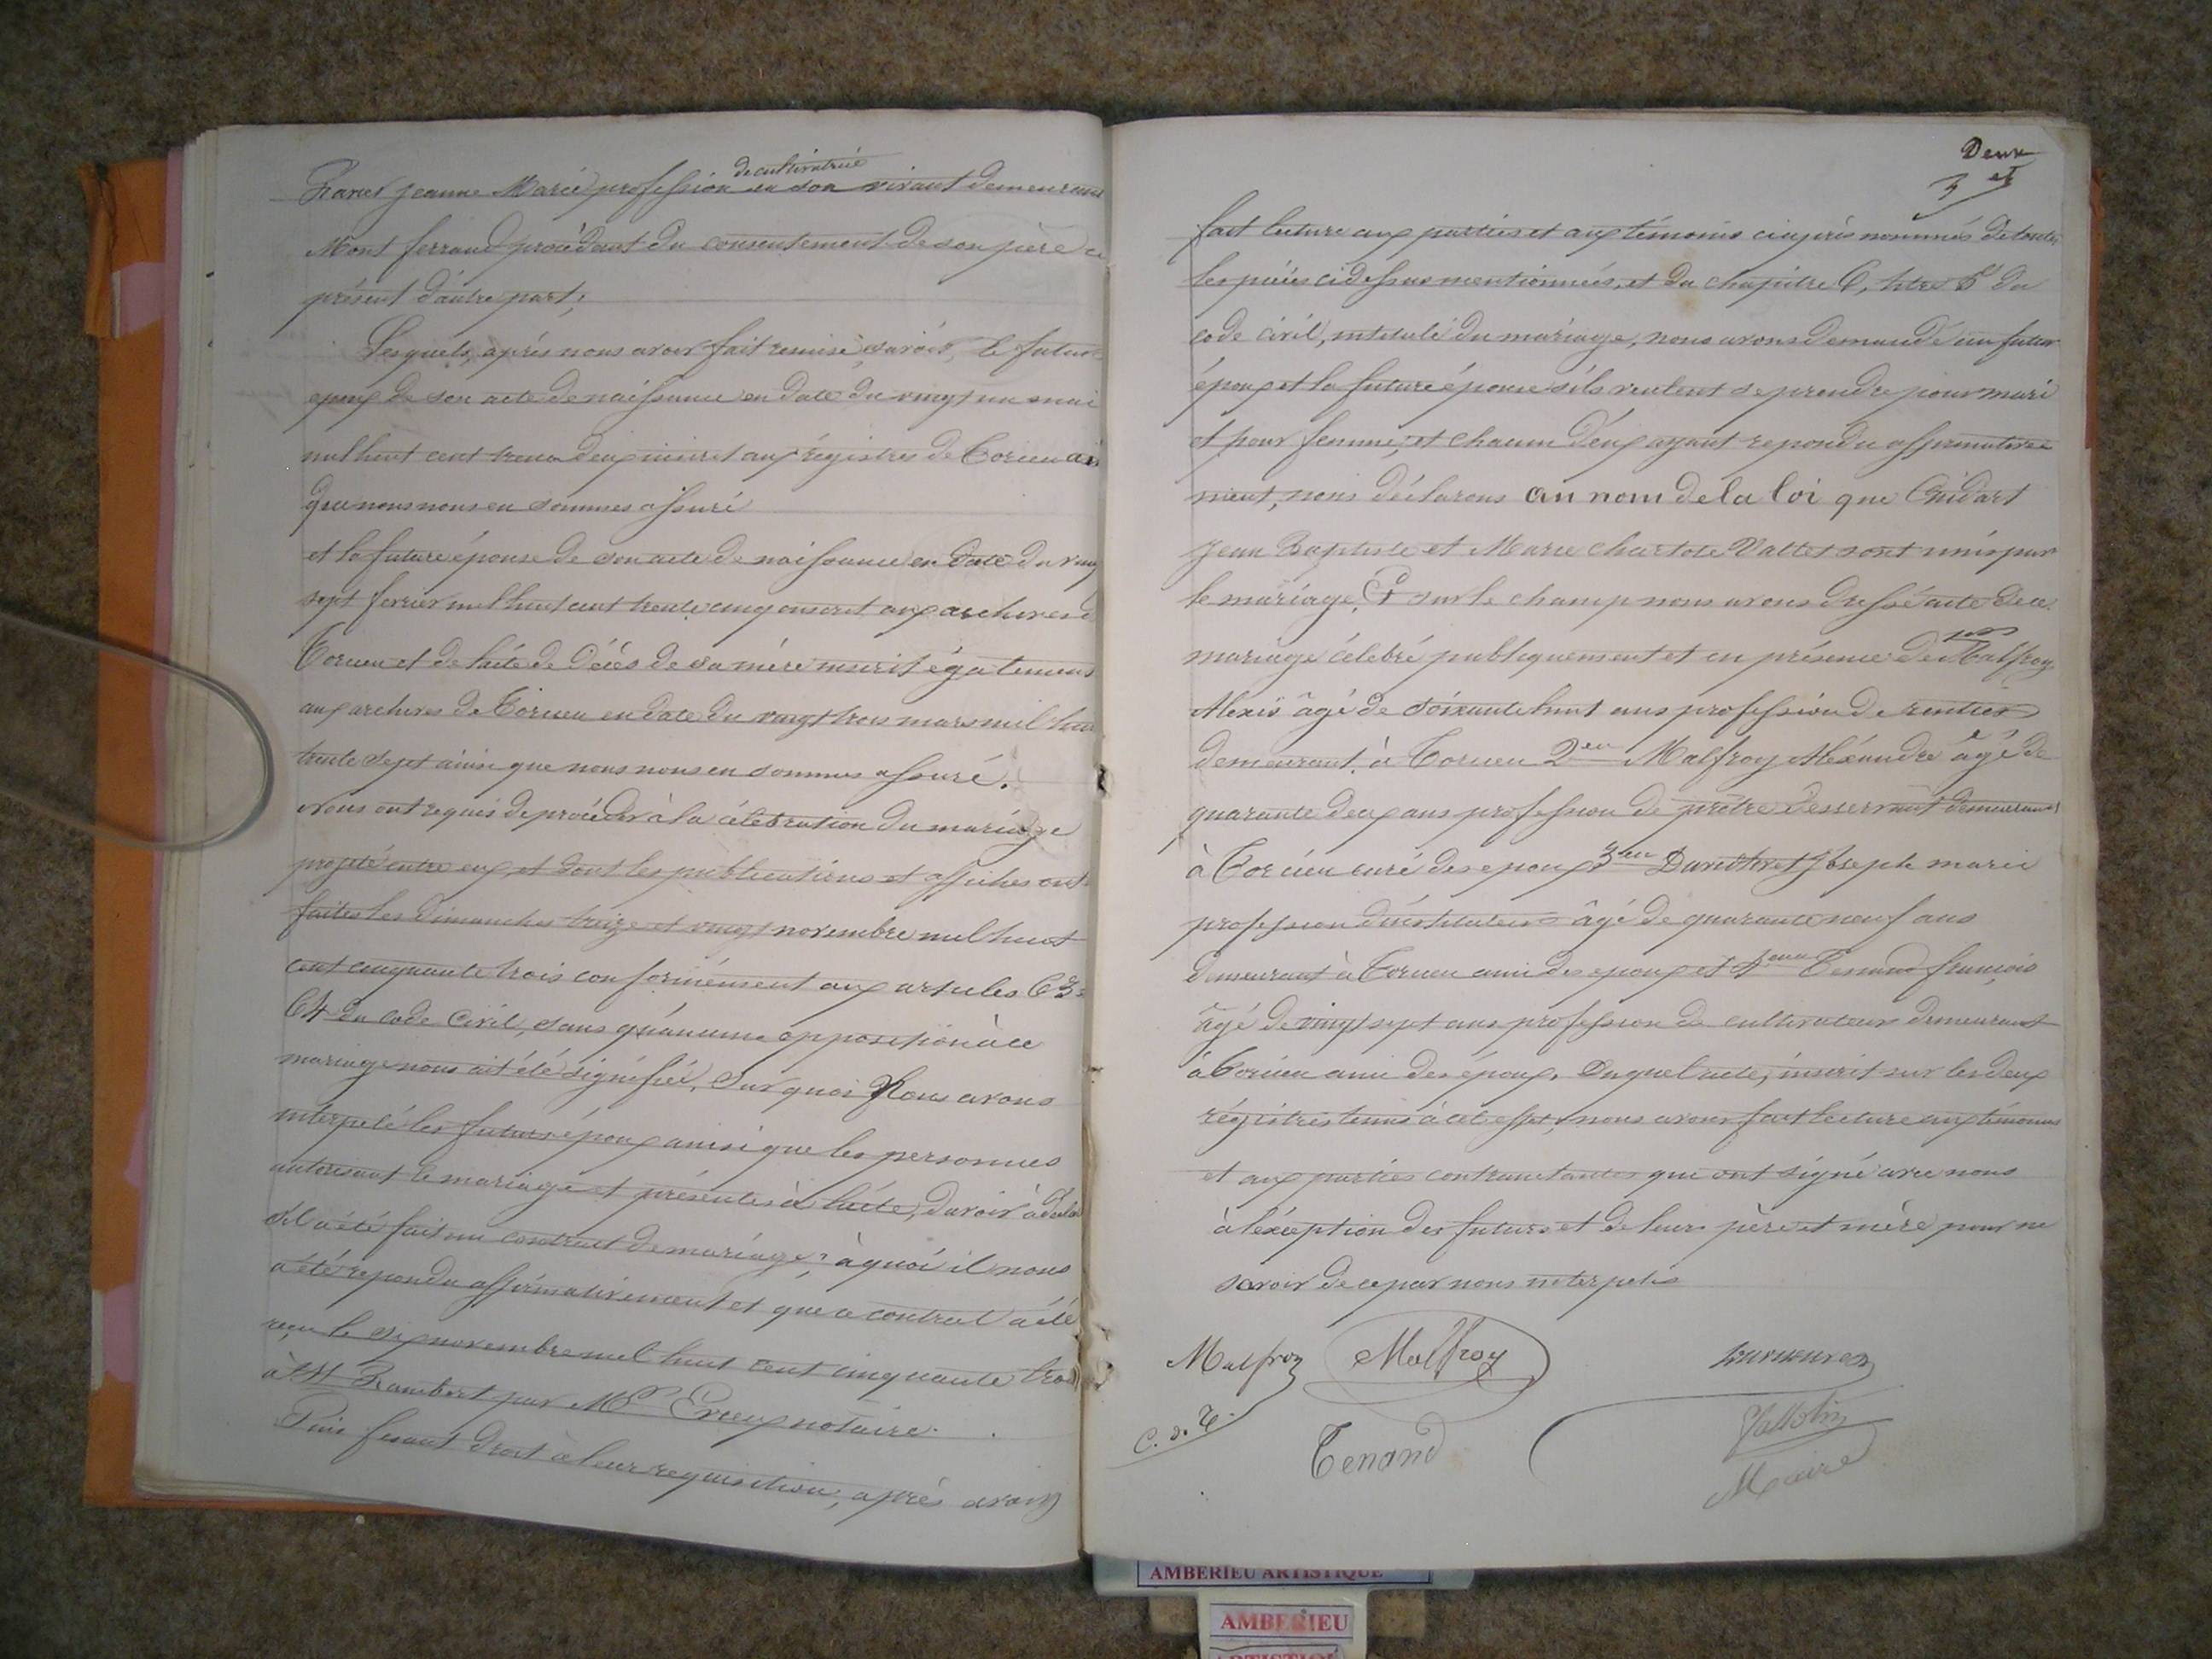 de cultivatrice
Jeanne Marie profession en son vivant demeurant
Mont ferrand procédant du consentement de son père ci
présent d'autre part;
Lesquels, après nous avoir fait remise, savoir, le futur
epoux de son acte de naissance en date du vingt un mai
mil huit cent trente deux inscrit aux régistres de Torcieu ain
que nous nous en sommes assuré
et la future épouse de son acte de naissance en date du ving
sept ferrier mil huit cent trente cinq enscrit aux archives d
Torcieu et de l'acte de décès de sa mère inscrit également
aux archives de Torcieu en date du vingt trois mars mil huit
trente sept ainsi que nous nous en sommes assuré.
Nous ont requis de procéder à la célébration du mariage
projeté entre eux et dont les publications et affiches ont
faites les dimanches treize et vingt novembre mil huit
cent cinquante trois conformément aux articles 63 e
64 du code civil, sans qu'aucune opposition à ce
mariage nous ait été signifiée, Sur quoi Nous avons
interpelé les futurs époux ainsi que les personnes
autorisant le mariage et présentes à l'acte, d'avoir à déclar
s'il a été fait un contract de mariage; à quoi il nous
a été repondu affirmativement et que ce contrat a été
reçu le six novembre mil huit cent cinquante trois
à St Rambert par Me notaire.
Puis fesant droit à leur requisition, après avoir
Deux
et
3
fait lecture aux parties et aux témoins ciaprès nommés de toutes
les pièces cidessus mentionnées, et du chapitre 6, titre 5 du
code civil, intitulé du mariage, nous avons demandé au futur
époux et la future épouse s'ils veulent se prendre pour mari
et pour femme, et chacun d'eux ayant repondu affirmative
ment, nous déclarons au nom de la loi que
Jean Baptiste et Marie charlote Vallet sont unis par
le mariage, Et sur le champ nous avons dressé acte de ce
mariage célébré publiquement et en présence de Malfroy
Alexis âgé de soixante huit ans profession de rentier
demeurant à Torcieu 2eu Malfroy Aléxandre âgé de
quarante deux ans profession de prètre desservant demeurant
à Torcieu curé des epoux 3eu Joseph marie
profession d'instituteur âgé de quarante neuf ans
demeurant à Torcieu ami des epoux et 4eme Tenand françois
âgé de vingt sept ans profession de cultivateur demeurant
à Torcieu ami des époux. Duquel acte, inscrit sur les deux
régistres tenus à cet effet, nous avons fait lecture aux témoins
et aux parties contractantes que ont signé avec nous
à l'éxception des futurs et de leurs père et mère pour ne
savoir de ce par nous interpelés
Malfroy Malfroy
c. d. T.
Tenand
Maire
AMBERIEU ARTISTIQUE
AMBERIEU
ARTISTIQUE